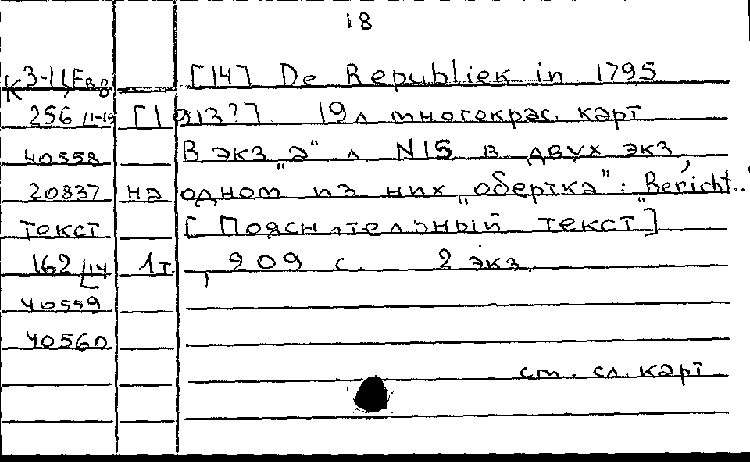 18
К 3-11 Евр [14] De Republiek in 1795
256/11-14 [1913?]. 19 л многокрас. карт
40558 В экз „а“ л N15 в двух экз,
20837 на одном из них „обертка“: Bericht..“
Текст [Пояснительный текст]
162/14 1т, 209 с. 2 экз
40559
40560
см. сл. карт